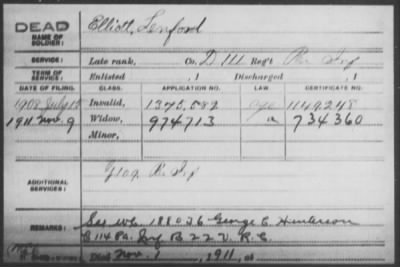 DEAD
NAME OF SOLDIER: Elliott, Lenford
SERVICE: Late rank, Co. D 111 Reg't Pa. Inf
TERM OF SERVICE: Enlisted , 1 Discharged , 1
DATE OF FILING. CLASS. APPLICATION NO. LAW CERTIFICATE NO.
1908 July 15 Invalid, 1375,082 1149248
1911 Nov. 9 Widow, 974713 a 734360
Minor,
ADDITIONAL SERVICES: Pa. Inf
REMARKS: See W.C. 188036 George C. Henderson
114 Pa. Inf B 22 V.R.C.
Died Nov. 1, 1911, at